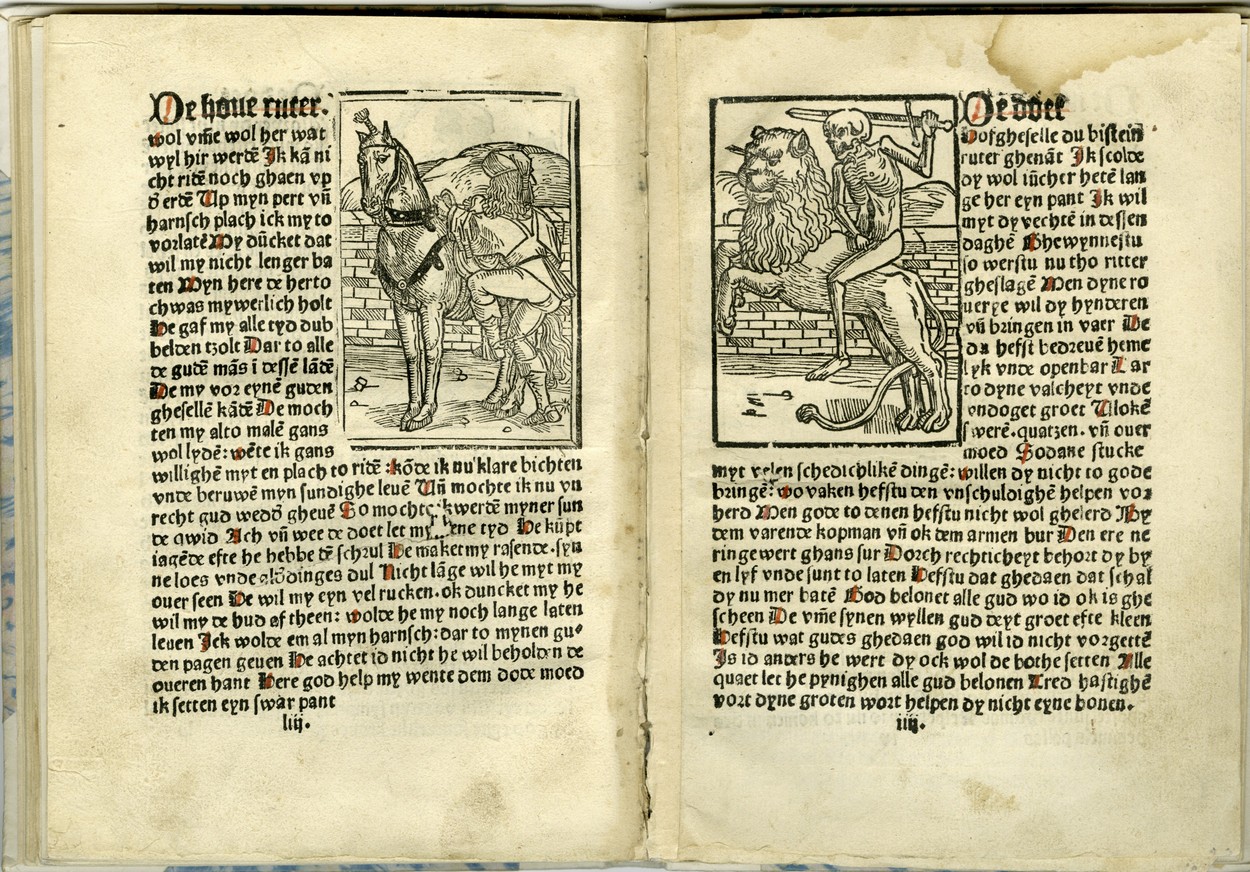 De houe ruter.
wol vm̄e wol her wat
wyl hir werdē Jk kā ni
cht ridē noch ghaen vp
d̕ erdē Up myn pert vn̄
harnsch plach ick my to
vorlatē My dūcket dat
wil my nicht lenger ba
ten Myn here de herto
ch was my werlich holt
He gaf my alle tyd dub
belden tzolt Dar to alle
de gudē mās ī dessē lādē
De my vor eynē guden
ghesellē kādē De moch
ten my alto malē gans
wol lydē: wēte ik gans
willighē myt en plach to ridē :kōde ik nu klare bichten
vnde beruwē myn sundighe leuē Un̄ mochte ik nu vn
recht gud wedd̕ gheuē So mochte werdē myner sun
de qwid Ach vn̄ wee de doet let my ene tyd He kūpt
iagēde efte he hebbe dē schrul He maket my rasende.syn
ne loes vnde dinges dul Nicht lāge wil he myt my
ouer seen He wil my eyn vel rucken.ok duncket my he
wil my de hud af theen: wolde he my noch lange laten
leuen Jck wolde em al myn harnsch:dar to mynen gu⸗
den pagen geuen He achtet id nicht he wil beholden de
oueren hant Here god help my wente dem dode moed
ik setten eyn swar pant
liij.
De doet
Hofgheselle du bistein
ruter ghenāt Jk scolde
dy wol iūcher hetē lan
ge her eyn pant Jk wil
myt dy vechtē in dessen
daghē Ghewynnestu
so werstu nu tho ritter
gheslagē Men dyne ro
uerye wil dy hynderen
vn̄ bringen in vaer De
du hefst bedreuē heme
lyk vnde openbar Dar
to dyne valscheyt vnde
vndoget groet Uloke
swerē.quatzen.vn̄ ouer
moed Sodane stucke
myt velen schedichlikē dingē: willen dy nicht to gode
bringē: wo vaken hefstu den vnschuldighē helpen vor
herd Men gode to denen hefstu nicht wol ghelerd My
dem varende kopman vn̄ ok dem armen bur Den ere ne
ringe wert ghans sur Dorch rechticheyt behort dy by
en lyf vnde sunt to laten Hefstu dat ghedaen dat schal
dy nu mer batē God belonet alle gud wo id ok is ghe
scheen De vm̄e synen wyllen gud deyt groet efte kleen
Hefstu wat gudes ghedaen god wil id nicht vorgettē
Js id anders he wert dy ock wol de bothe setten Alle
quaet let he pynighen alle gud belonen Tred hastighē
vort dyne groten wort helpen dy nicht eyne bonen.
iiij.